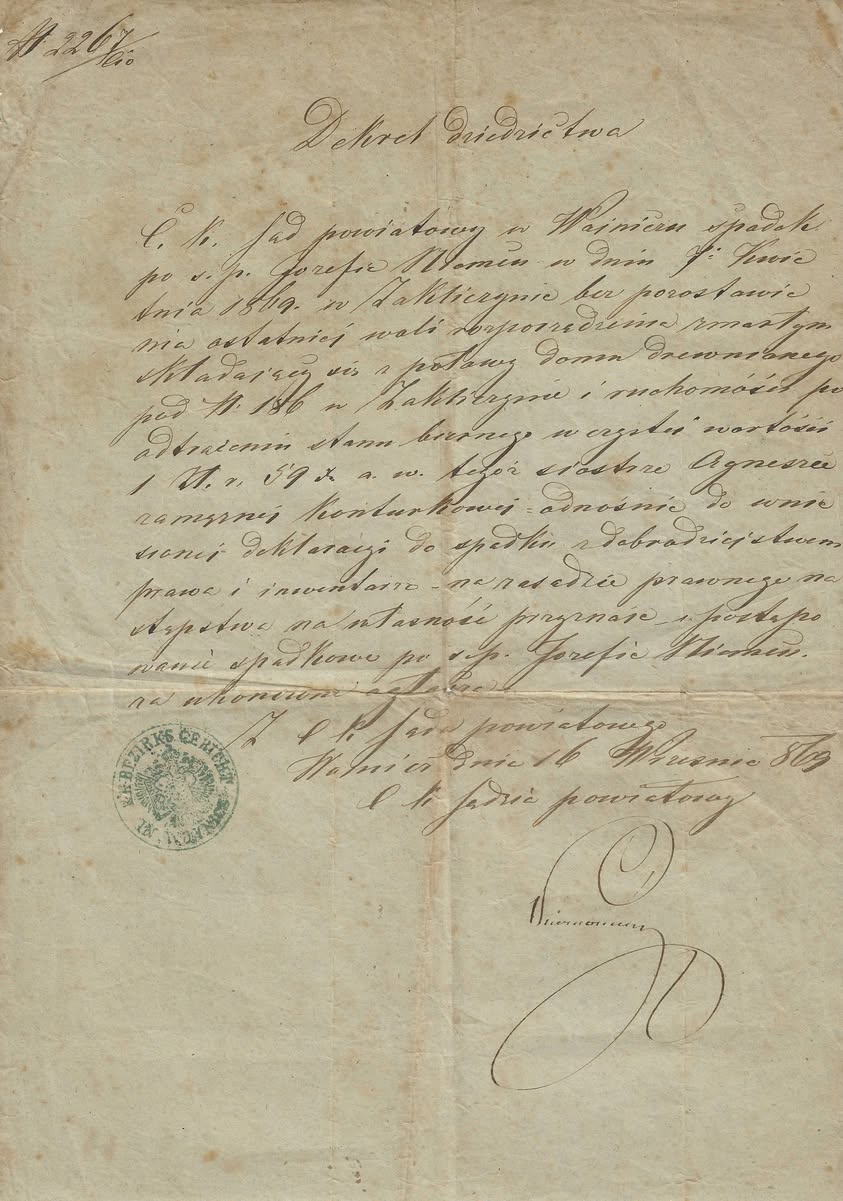 N. 2267/cio
Dekret dziedzictwa
C. k. Sąd powiatowy w Wojniczu spadek
po s. p. Jozefie Niemcu w dniu 7° Kwie
tnia 1869. w Zakliczynie bez pozostawie
nia ostatniej woli rozporządzenia zmarłym
składający się z połowy domu drewnianego
pod N. 186 w Zakliczynie i ruchomości po
odtrąceniu stanu biernego w czystej wartości
1 Zł. r. 59 x a. w. tegoż siostrze Agnieszce
zamężnej Konturkowej odnośnie do wnie
sionej deklaracyi do spadku z dobrodziejstwem
prawa i inwentarza - na zasadzie prawnego na
stępstwa na własność przyznaje i postępo
wanie spadkowe po s.p. Jozefie Niemcu.
za ukończone ogłasza
Z C k Sądu powiatowego
Wojnicz dnia 16 Wrzesnia 869
C k Sędzia powiatowy
K.K. BEZIRKS GERICHT